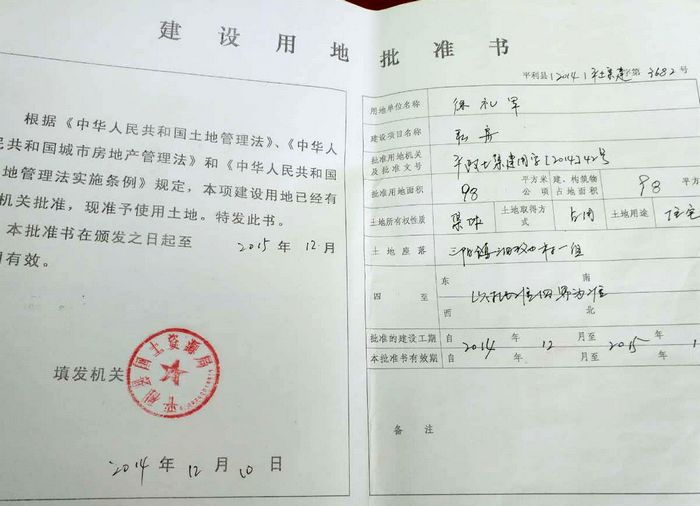 建设用地批准书
根据《中华人民共和国土地管理法》、《中华人
民共和国城市房地产管理法》和《中华人民共和国
地管理法实施条例》规定，本项建设用地已经有
机关批准，现准予使用土地。特发此书。
本批准书在颁发之日起至 2015 年 12 月
有效。
填发机关
平利县国土资源局
2014 年 12 月 10 日
平利县[2014]平土集建字第3682号
用地单位名称 徐礼军
建设项目名称
批准用地机关及批准文号 [2014]42号
批准用地面积 98 平方米 公项 建、构筑物占地面积 98 平方
土地所有权性质 集体 土地取得方式 占用 土地用途 住宅
土地座落 三阳镇 村一组
四至 东 南 西 北
批准的建设工期 自 2014 年 12 月至 2015 年 1
本批准书有效期 自 年 月至 年
备注